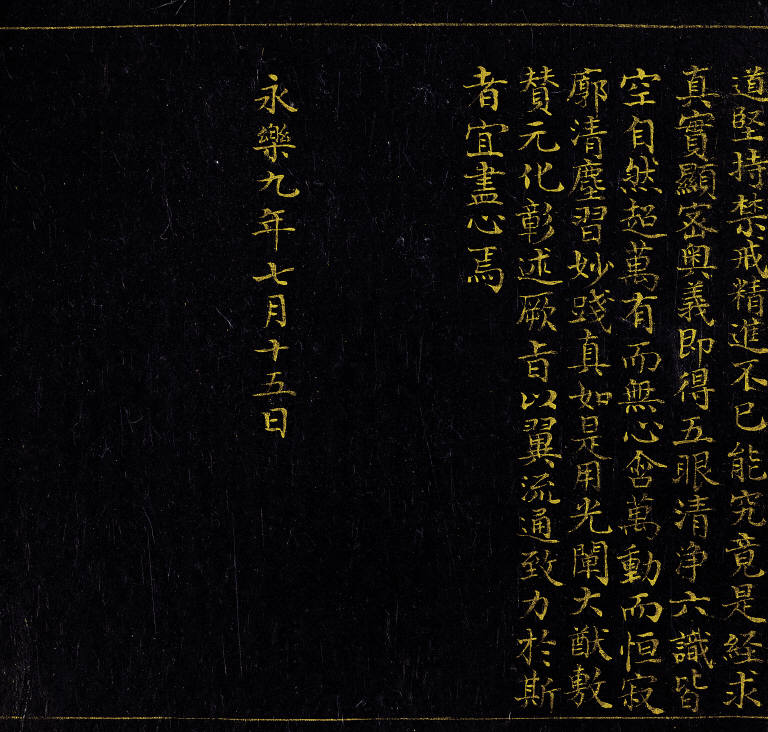 道堅持禁戒精進不已能究竟是経求
真實顯密奥義即得五眼清浄六識皆
空自然超萬有而無心會萬動而恒寂
廓清塵習妙踐真如是用光闡大猷敷
賛元化彰述厥㫖以翼流通致力於斯
者宜盡心焉
永樂九年七月十五日